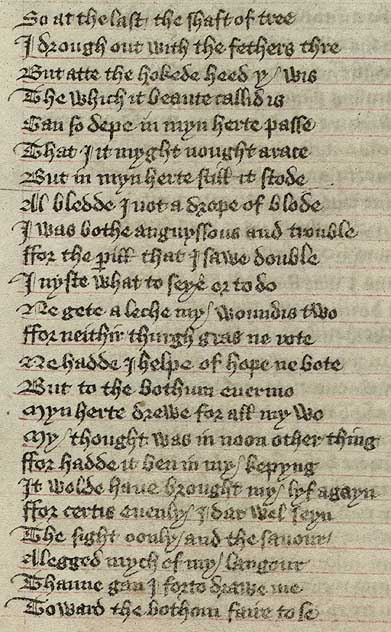 So at the last the shaft of tree
I drough out with the fethers thre
But atte the hokede heed y wis
The which it beaute callid is
Gan so depe in myn herte passe
That I it myght nought arace
But in myn herte still it stode
Al bledde I not a drope of blode
I was bothe anguyssous and trouble
ffor the pill that I sawe double
I nyste what to seye or to do
Ne gete a leche my woundis two
ffor neithir thurgh gras ne rote
Ne hadde I helpe of hope ne bote
But to the bothum euermo
Myn herte drewe for all my wo
My thought was in noon other thing
ffor hadde it ben in my kepyng
It wolde haue brought my lyf agayn
ffor certis euenly I dar wel seyn
The sight oonly and the sauour
Alegged mych of my langour
Thanne gan I forto drawe me
Toward the bothom faire to se